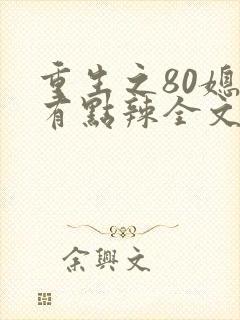 重生之80媳
有點辣全文
余興文